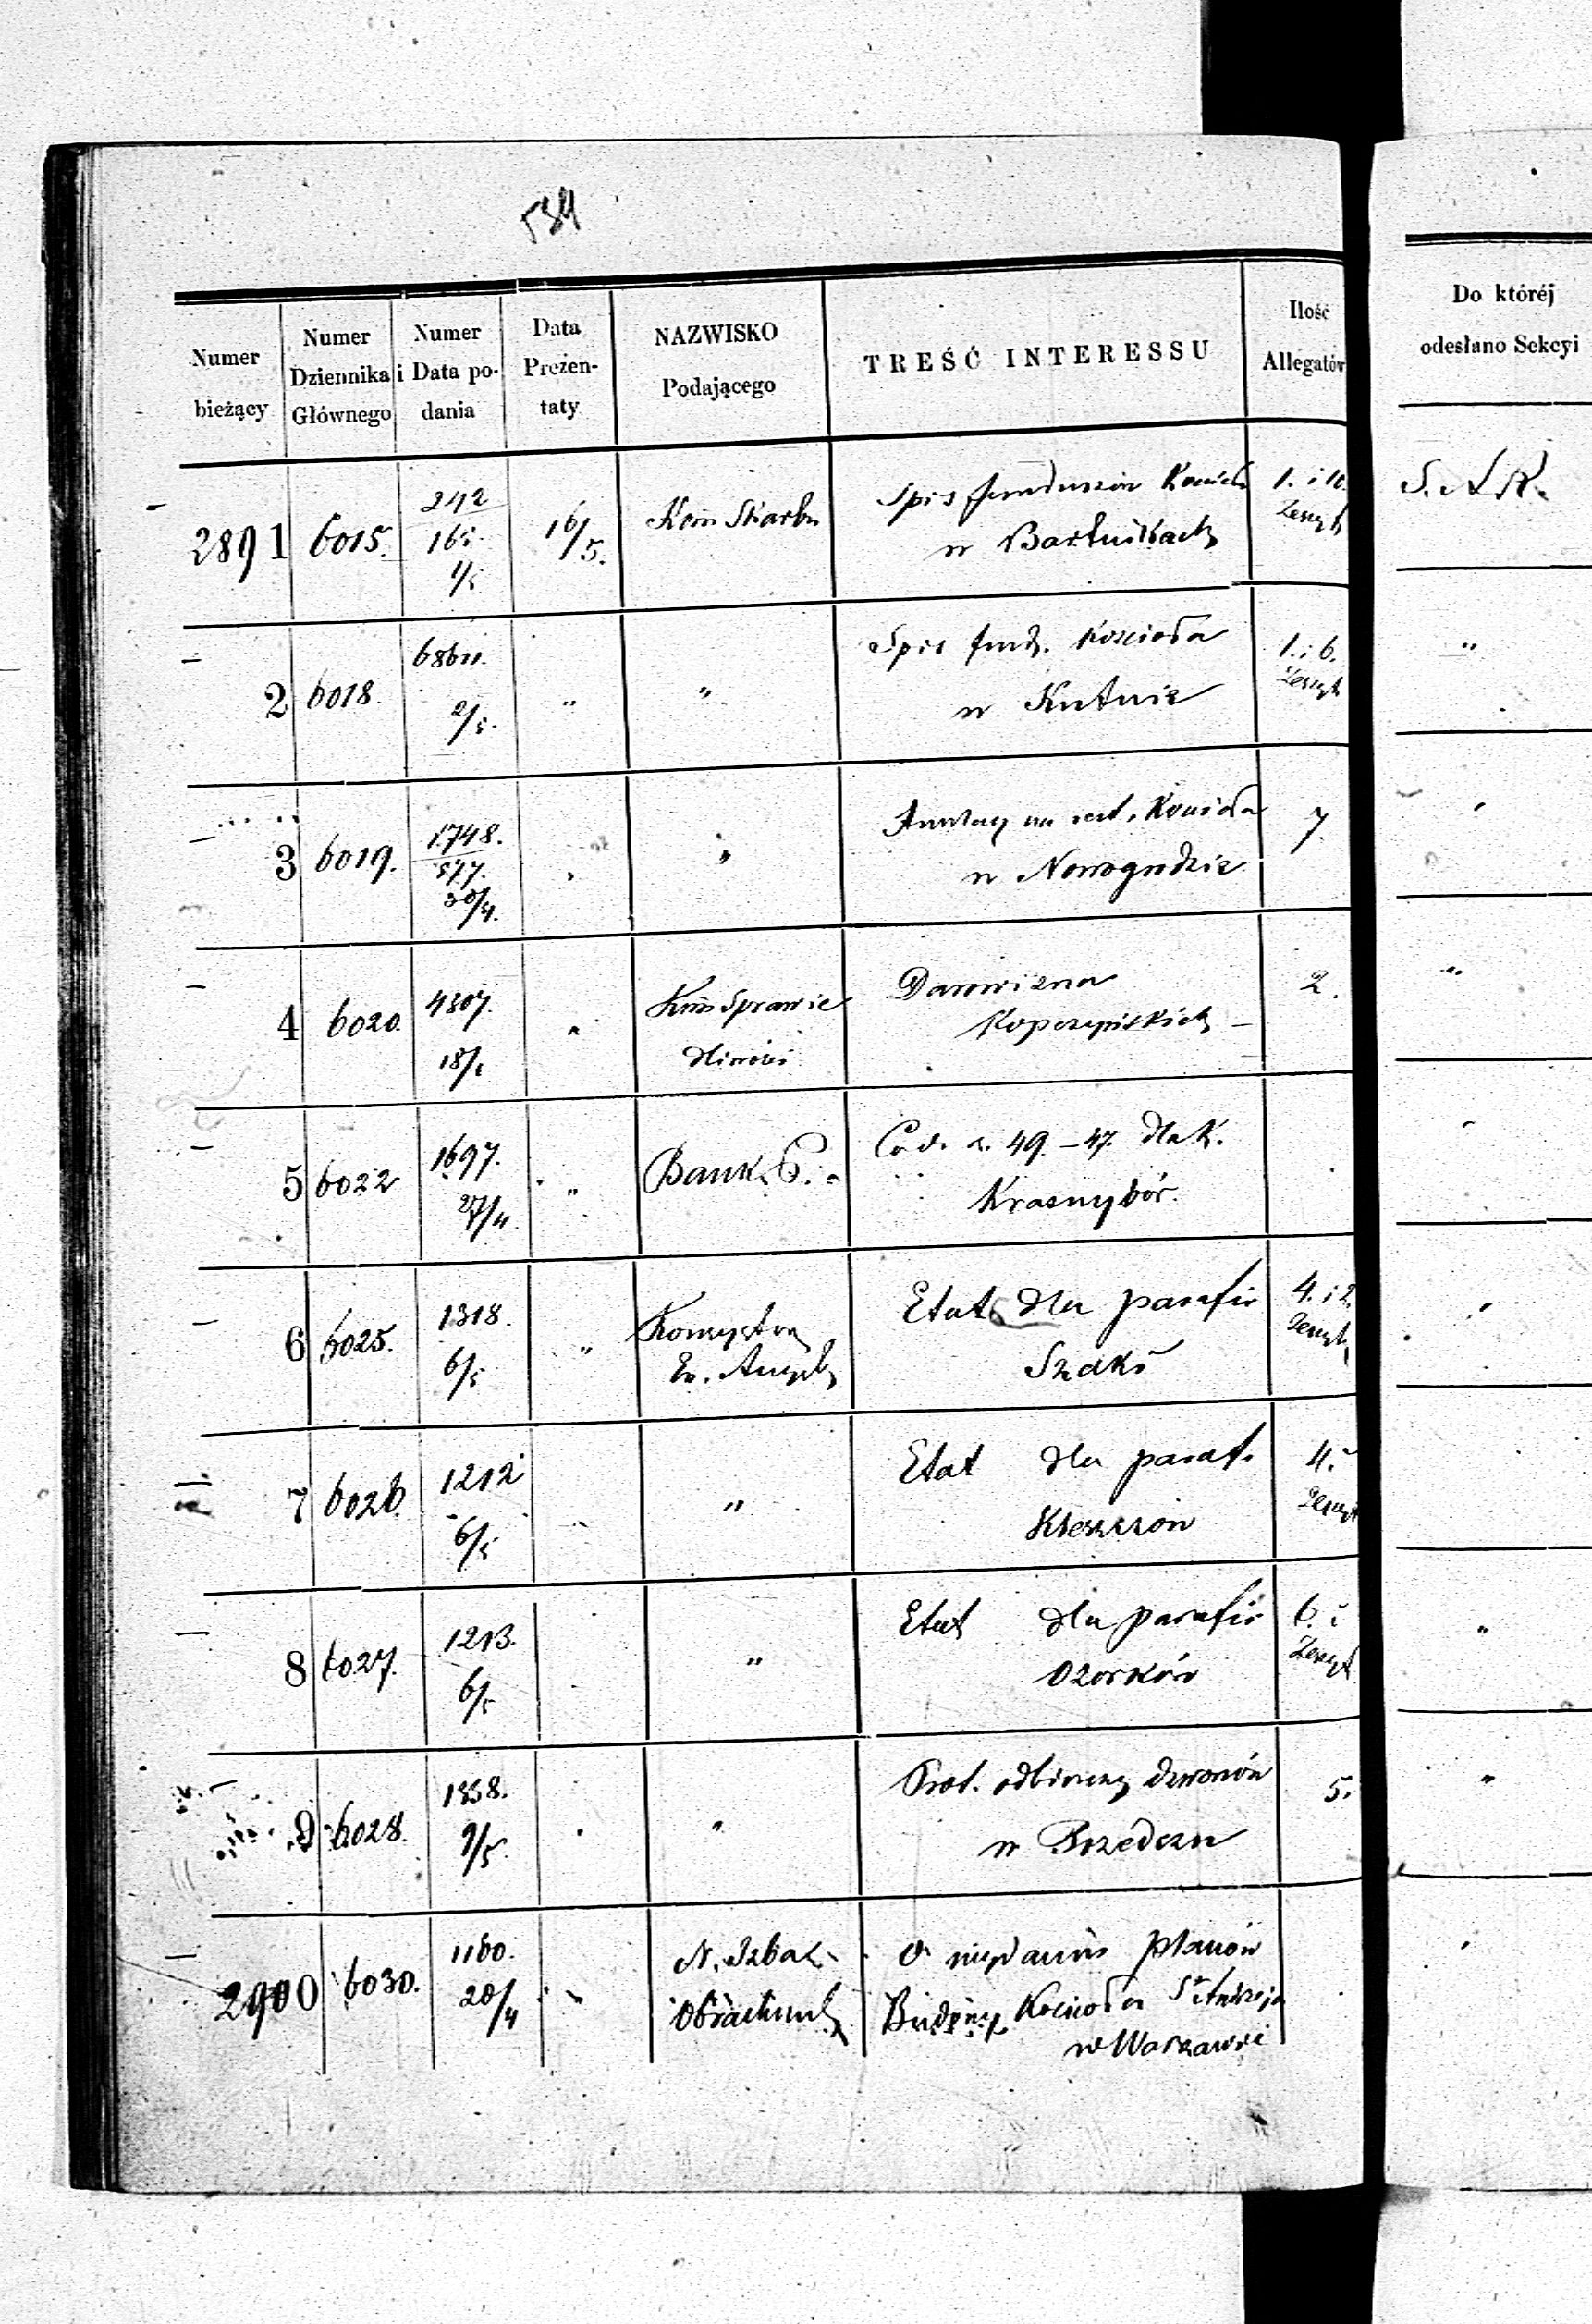 534
Numer bieżący
Numer Dziennika Głównego
Numer i Data podania
Data Prezentaty
NAZWISKO Podającego
TREŚĆ INTERESSU
Ilość Allegatów
Do któréj odesłano Sekcyi
2891 6015. 242 16/5. Kom Skarbu Spis funduszów 1. i
1/5 w Bartnikach Zeszyt
2 6018. 2/5. " " Spis fund. Kościoła 1. i 6.
w Kutnie Zeszyt
3 6019. 1748. " Kościoła 7.
577. w Nowogrodzie
30/4.
4 6020. 4307. " Kom Sprawie Darowizna 2.
18/ dliwości Kopczyńskich
5 6022 1697. " Bank. P. 49. – 47. dla K.
27/4. Krasnybór.
6 6025. 1318. " Konsystorz Etat dla parafii 4. i 2.
6/5 Ew. Augsb Szaki Zeszyty
7 6026. 1212 " Etat dla paraf. 4. i
6/5 Kleszczów Zeszyt
8 6027. 1213. " Etat dla parafii 6. i "
6/5 Ozorków Zeszyt
9 6028. 1358. " Prot. odbiorczy dzwonów 5. "
9/5. w Przedczu
2900 6030. 1160. N. Izba O planów
20/4 Obrachunk Budowy Kościoła St Andrzeja
w Warszawie